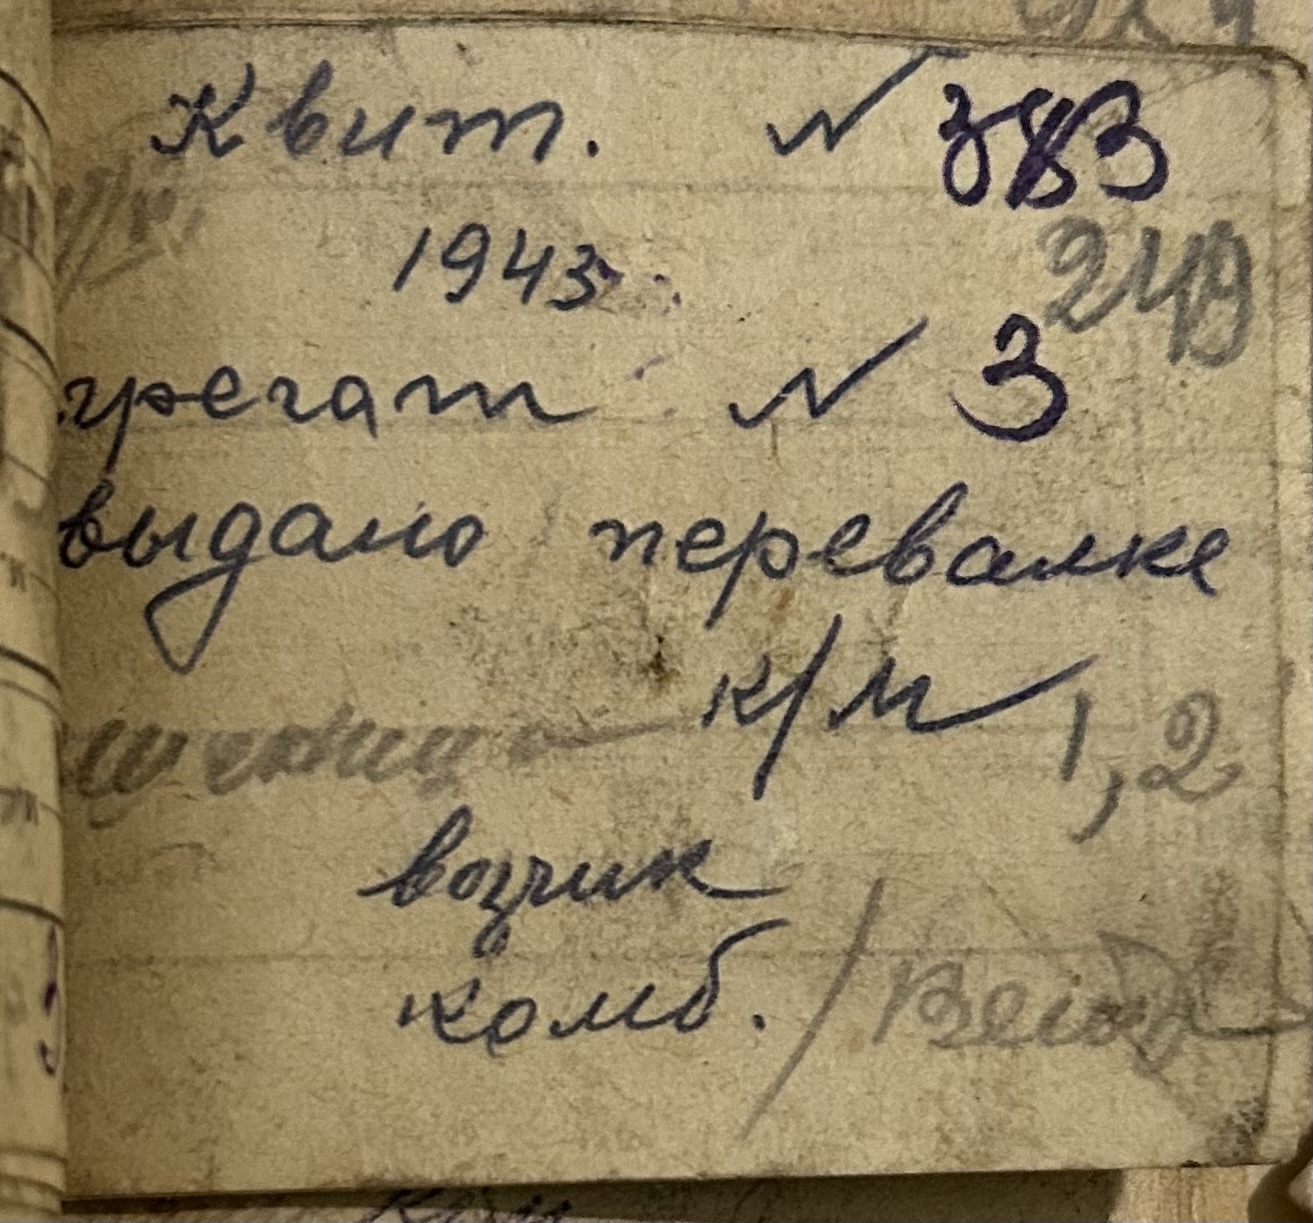 Квит. N 383
1943
249
грегат N 3
выдано перевалке
к/м 1,2
возчик
комб.